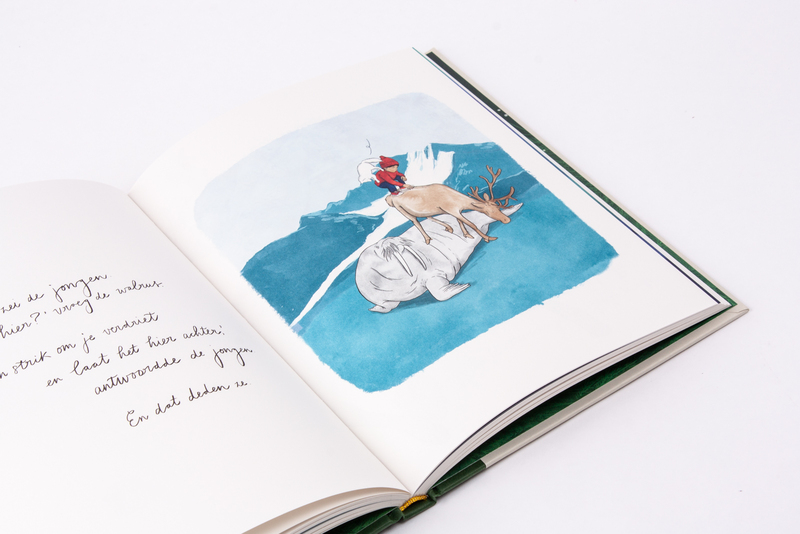 zei de jongen
hier?' vroeg de walrus
n strik om je verdriet
en laat het hier achter,'
antwoordde de jongen
En dat deden ze